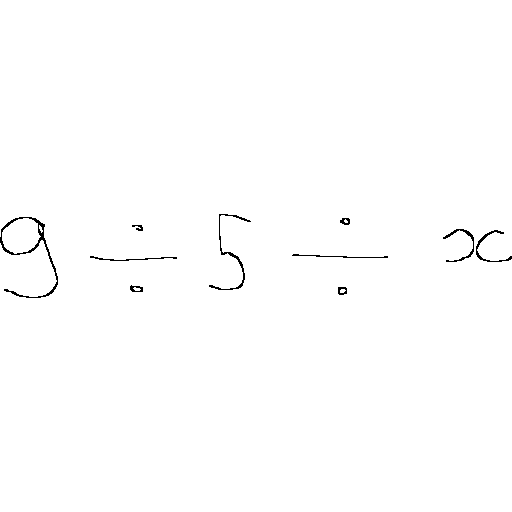 9 ÷ 5 ÷ x